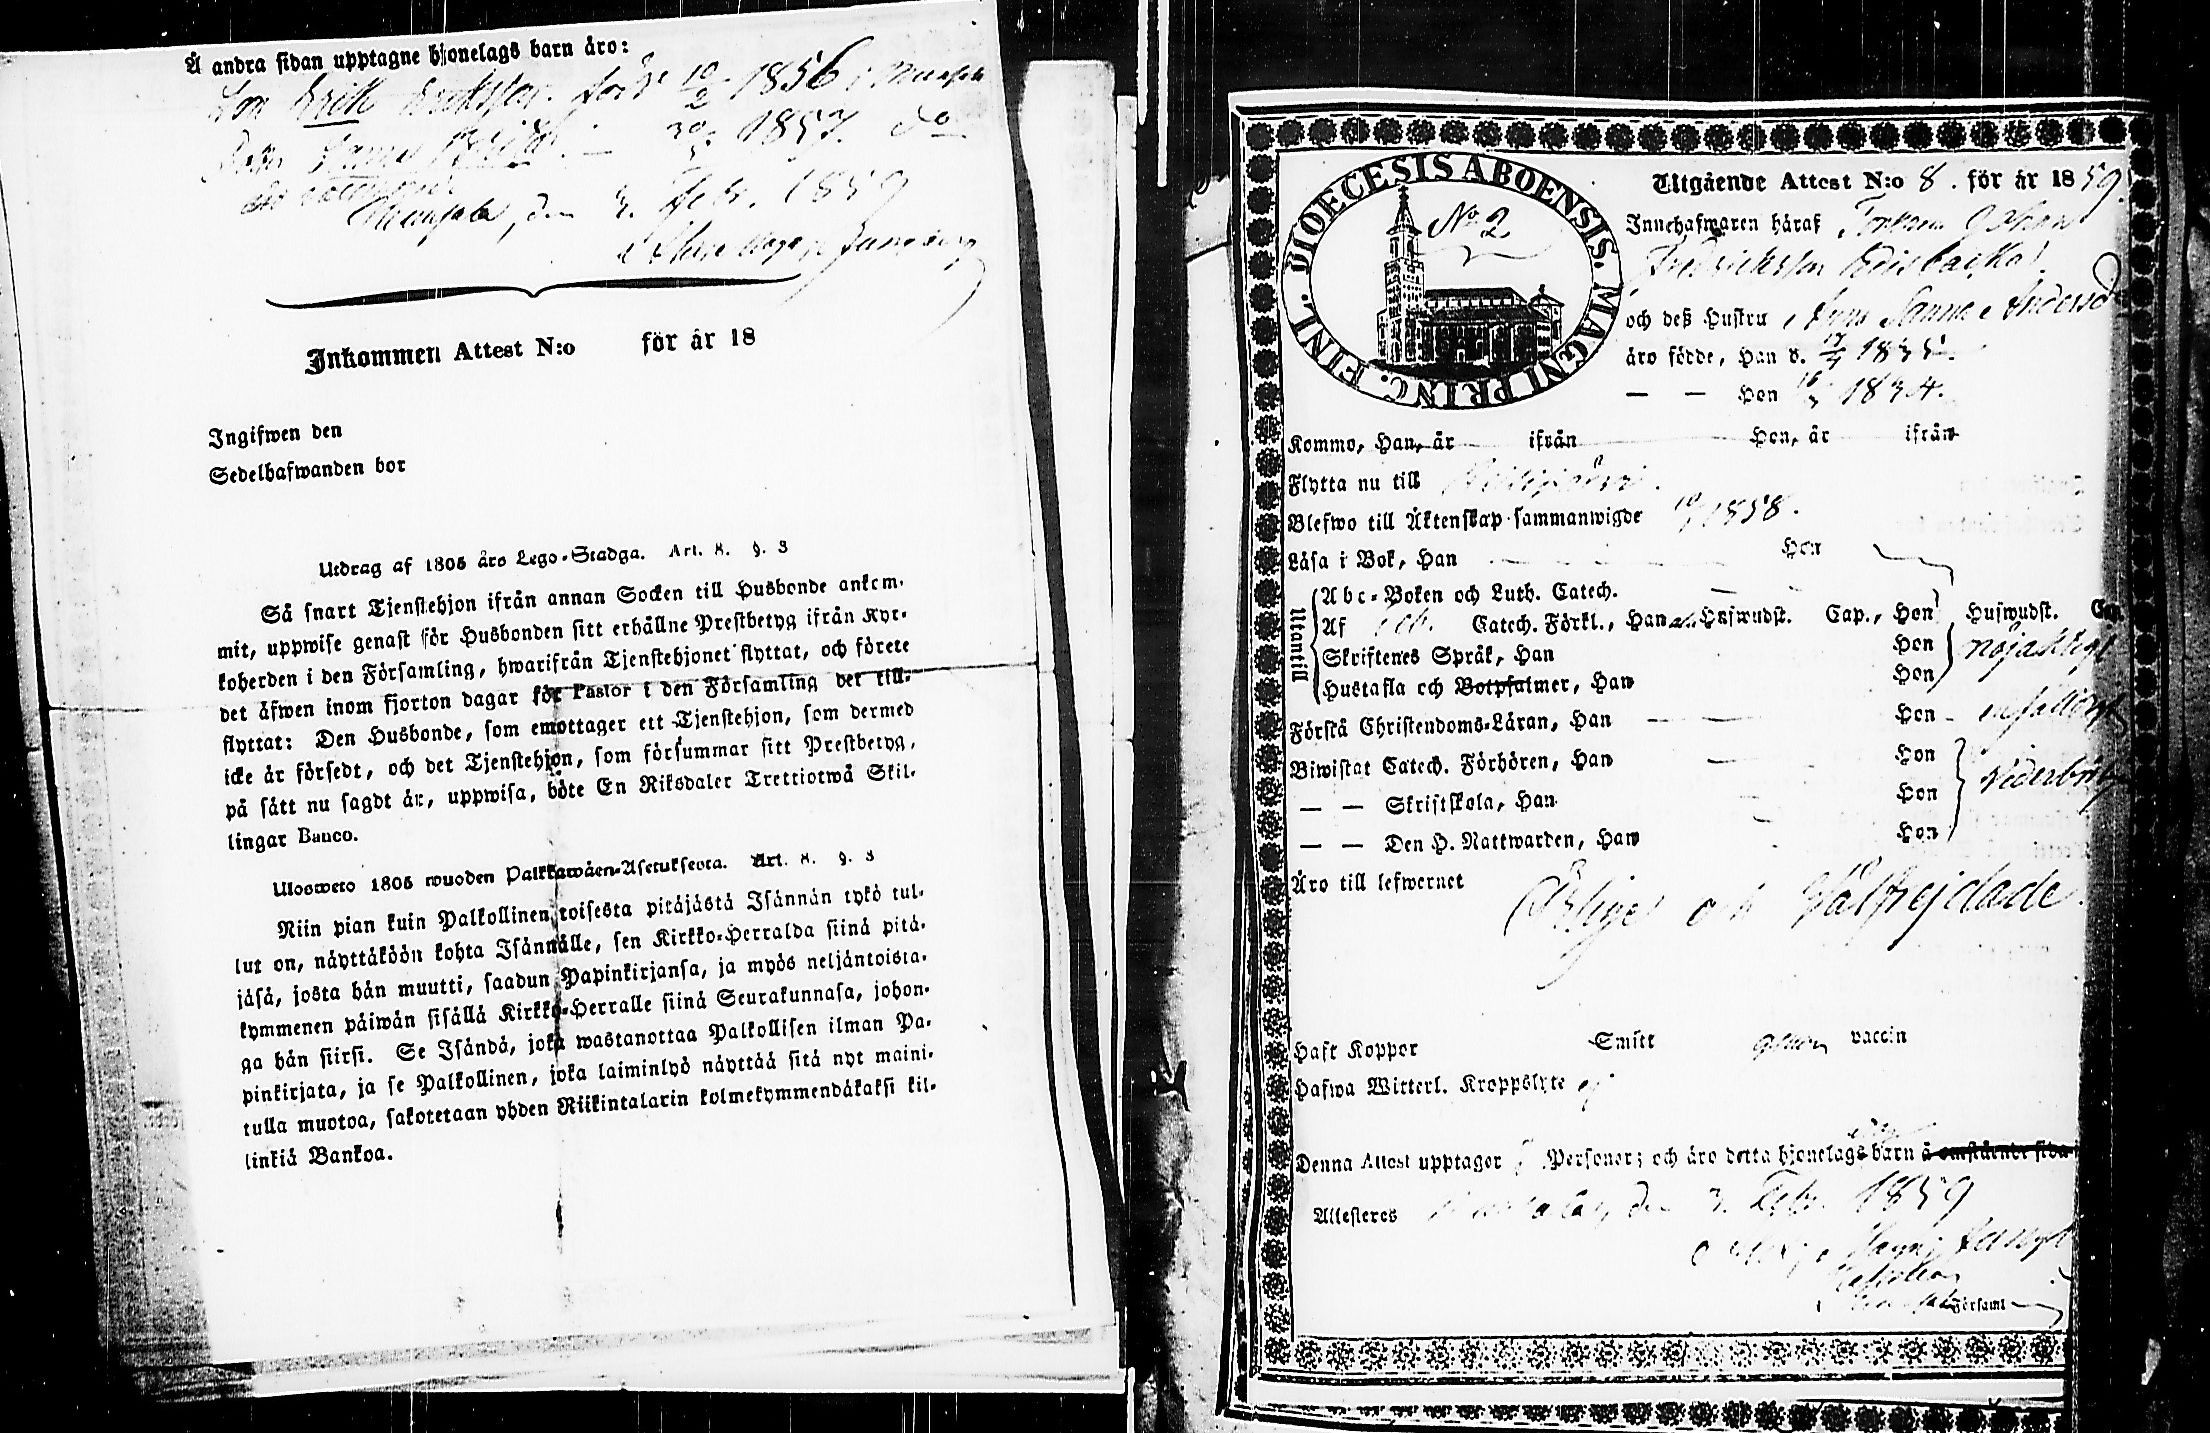 Å andra sidan upptagne hjonelags barn äro:
Son Erik Eriksson född 10/2 1856 i Munsala
30/ 1857. do
Munsala, den 3. Febr. 1859
Inkommen Attest N:o för år 18
Ingifwen den
Sedelhafwanden bor
Utdrag af 1805 års Lego-Stadga. Art. 8. §. 3
Så snart Tjenstehjon ifrån annan Socken till Husbonde ankom-
mit, uppwise genast för Husbonden sitt erhållne Prestbetyg ifrån Kyr-
koherden i den Församling, hwarifrån Tjenstehjonet flyttat, och förete
det äfwen inom fjorton dagar för Pastor i den Församling det till-
flyttat: Den Husbonde, som emottager ett Tjenstehjon, som dermed
icke är försedt, och det Tjenstehjon, som försummar sitt Prestbetyg,
på sätt nu sagdt är, uppwisa, böte En Riksdaler Trettiotwå Skil-
lingar Banco.
Ulosweto 1805 wuoden Palkkawäen-Asetuksesta. Art. 8. §. 3
Niin pian kuin Palkollinen toisesta pitäjästä Isännän tykö tul-
lut on, näyttäköön kohta Isännälle, sen Kirkko-Herralda siinä pitä-
jäsä, josta hän muutti, saadun Papinkirjansa, ja myös neljäntoista-
kymmenen päiwän sisällä Kirkko-Herralle siinä Seurakunnasa, johon-
ga hän siirsi. Se Isändä, joka wastanottaa Palkollisen ilman Pa-
pinkirjata, ja se Palkollinen, joka laiminlyö näyttää sitä nyt maini-
tulla muotoa, sakotetaan yhden Riikintalarin kolmekymmendäkaksi kil-
linkiä Bankoa.
DIOECESIS ABOENSIS. MAGNI PRINC. FINL.
No 2
Utgående Attest N:o 8. för år 1859.
Innehafwaren häraf Torparen Johan
Fredriksson
och deß Hustru Sanna Andersd
äro födde, Han d. 17/ 1835.
— — Hon 16/ 1834.
Kommo, Han, år ifrån Hon, år ifrån
Flytta nu till
Blefwo till Äktenskap sammanwigde 10/ 1858.
Läsa i Bok, Han Hon
Utantill
Abc-Boken och Luth. Catech.
Af Catech. Förkl., Han Hufwudst. Cap., Hon Hufwudst. Cap.
Skriftenes Språk, Han Hon nöjaktigt
Hustafla och Botpsalmer, Han Hon
Förstå Christendoms-Läran, Han — Hon - enfaldigt
Biwistat Catech. Förhören, Han Hon
— — Skriftskola, Han Hon
— — Den H. Nattwarden, Han Hon
Äro till lefwernet Ärlige och Välfrejdade.
Haft Koppor Smitt genom vaccin
Hafwa Witterl. Kroppslyte ej
Denna Attest upptager Personer; och äro detta hjonelags barn å omstående sida
Attesteras den 3. Febr. 1859
Församl